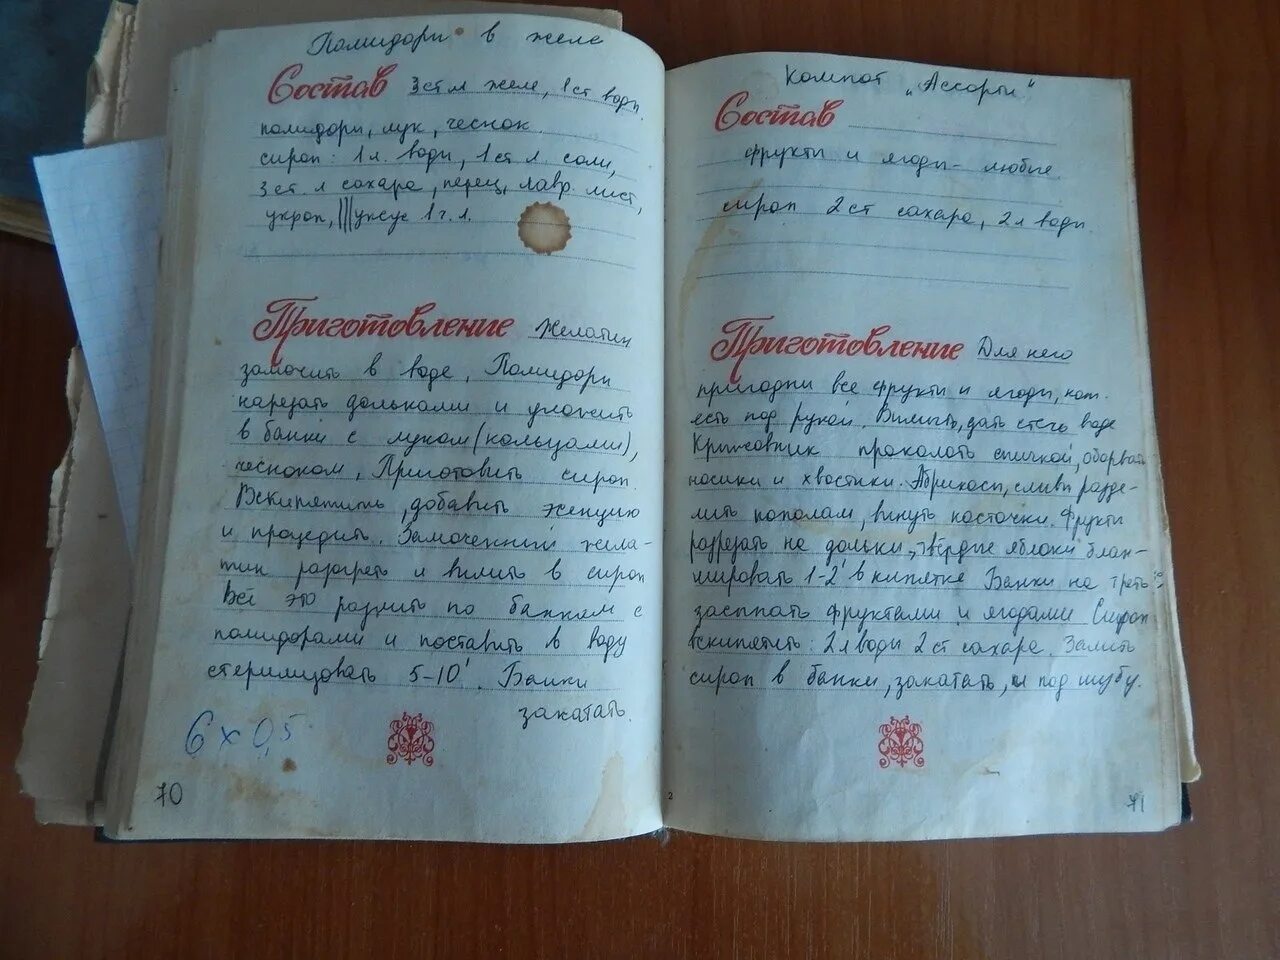 Помидори в желе
Состав 3 ст л желе, 1 ст води.
помидори, лук, чеснок.
сироп: 1 л. води, 1 ст л. соли,
3 ст л сахара, перец, лавр. лист,
укроп, уксус 1 ч. л.
Приготовление Желатин
замочить в воде. Помидори
нарезать дольками и уложить
в банки с луком (кольцами),
чесноком. Приготовить сироп.
Вскипятить, добавить эсенцию
и процедить. Замоченний жела-
тин разогреть и вилить в сироп
Всё это разлить по банкам с
помидорами и поставить в воду
стерилизовать 5-10'. Банки
закатать.
6 х 0,5
70
Компот „Ассорти"
Состав
фрукты и ягоды - любые.
сироп 2 ст сахара, 2 л води.
Приготовление Для него
пригодни все фрукты и ягоди, кот.
есть под рукой. Вимить, дать стечь воде
Крижовник проколоть спичкой, оборвать
носики и хвостики. Абрикоси, сливи разде-
лить пополам, винуть косточки. Фрукти
разрезать на дольки, твёрдые яблоки блан-
шировать 1-2' в кипятке Банки на треть
засыпать фруктами и ягодами Сироп
вскипятить: 2 л води 2 ст сахара. Залить
сироп в банки, закатать, и под шубу.
2
71